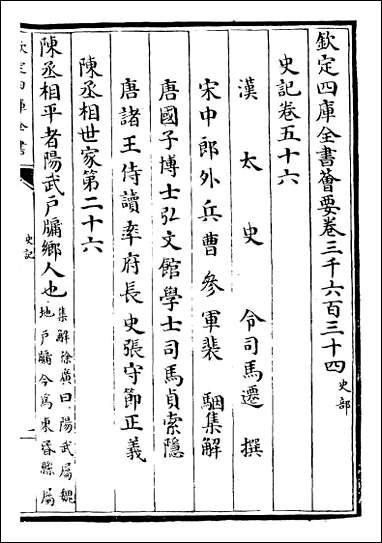 欽定四庫全書薈要卷三千六百三十四 史部
史記卷五十六
漢太史令司馬遷撰
宋中郎外兵曹參軍裴駰集解
唐國子博士弘文館學士司馬貞索隱
唐諸王侍讀率府長史張守節正義
陳丞相世家第二十六
陳丞相平者陽武戶牖鄉人也
集解徐廣曰陽武屬魏
地戶牖今為東昏縣屬
欽定四庫全書
史記
一